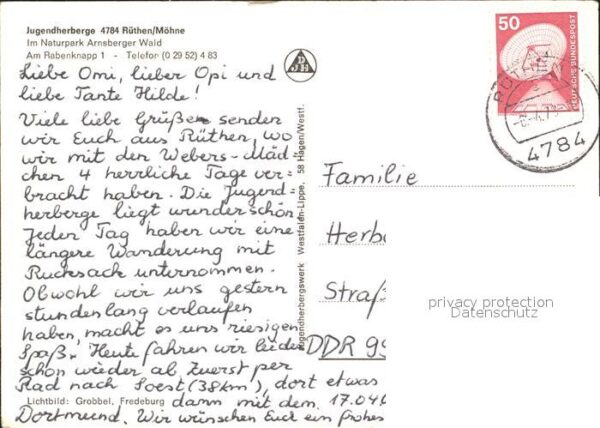 Jugendherberge 4784 Rüthen/Möhne
Im Naturpark Arnsberger Wald
Am Rabenknapp 1 - Telefon (0 29 52) 4 83
DJH
Liebe Omi, lieber Opi und
liebe Tante Hilde!
Viele liebe Grüße senden
wir Euch aus Rüthen, wo
wir mit den Webers-Mäd=
chen 4 herrliche Tage ver=
bracht haben. Die Jugend=
herberge liegt wunderschön.
Jeden Tag haben wir eine
längere Wanderung mit
Rucksack unternommen.
Obwohl wir uns gestern
stundenlang verlaufen
haben, macht es uns riesigen
Spaß. Heute fahren wir leider
schon wieder ab. Zuerst per
Rad nach Soest (38km), dort etwas
dann mit dem 17.04
Dortmund. Wir wünschen Euch ein frohes
Lichtbild: Grobbel, Fredeburg
Jugendherbergswerk Westfalen-Lippe, 58 Hagen/Westf.
50
DEUTSCHE BUNDESPOST
4784
Familie
Herb
Straß
DDR 99
privacy protection
Datenschutz